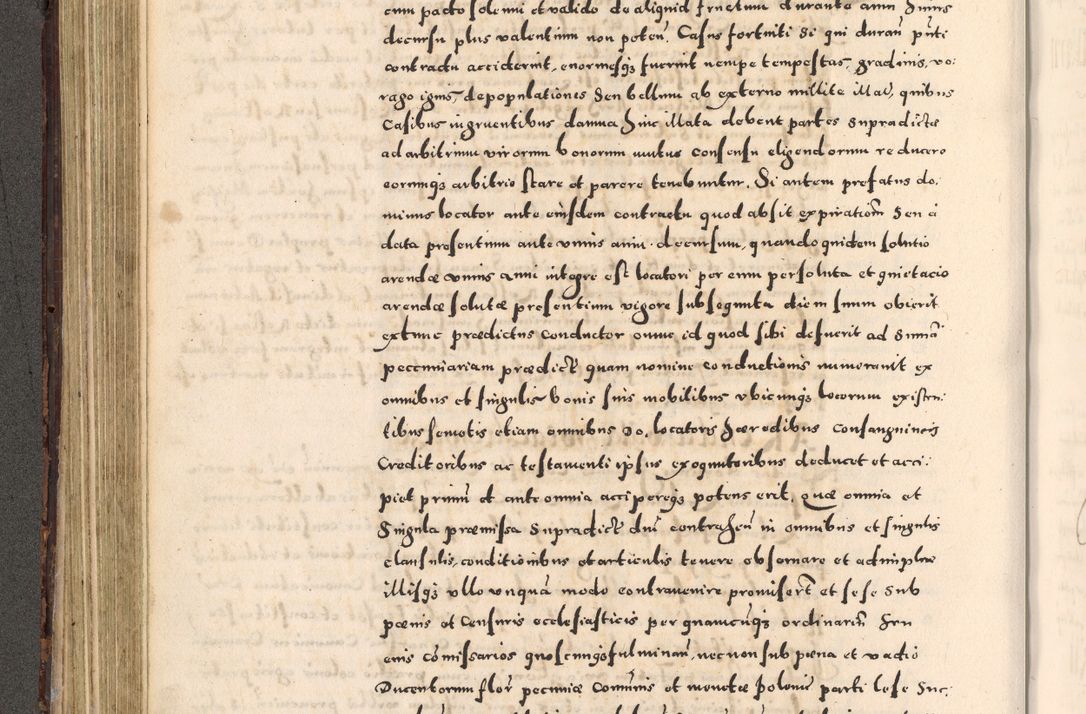 eum pacto solenni et valido de aliquid fructum durante anni huius
decursu plus valentium non poten̄. Casus fortuiti si qui duran̄ pn̄ti
contractu acciderint, enormesqз fuerint nempe tempestas, gradinis, vo:
rago ignis, depopulationes Seu bellum ab externo millite illat, quibus
Casibus ingruentibus damna hinc illata debent partes supradictæ
ad arbitrium virorum bonorum mutuo consensu eligendorum reducere
eorumqз arbitrio stare et parere tenebuntur. Si autem prefatus do:
minus locator ante eiusdem contractu quod absit expirationē Seu a
data presentium ante unius anni decursum, quandoquidem solutio
arendæ unius anni integre est locatori per eum persoluta et quietacio
arendæ solutæ presentium vigore subsequuta diem suum obierit
extunc prædictus conductor omne id quod sibi defuerit ad Sumā
peccuniariam prædict quam nomine conductionis numeravit ex
omnibus et singulis bonis suis mobilibus ubicunqз locorum existen:
tibus semotis etiam omnibus Do. locatoris hæredibus consanguineis
Creditoribus ac testamenti ipsius exequutoribus deducet et acci:
piet primū et ante omnia accipereqз potens erit. Quæ omnia et
Singula præmissa Supradict dnī contrahen̄ in omnibus et singulis
clausulis, conditionibus et articulis tenere observare et adimplere
illisqз ullo unquā modo contravenire promisert et sese sub
pœnis et Censuris ecclesiasticis per quamcūqз ordinariū Seu
eius cōmissarios quoscunqз fulminan̄, nec non sub pœna et vadio
Ducentorum flor̄ pecuniæ Com̄unis et monetæ Poloniæ parti lese Suc: